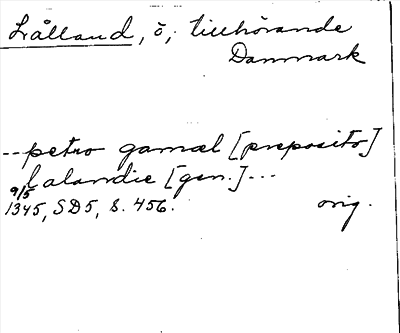 Lålland, ö, tillhörande
Danmark
--petro gamæl [preposito]
Lalandie [gen.]---
9/5
1345, SD5, s. 456. orig.